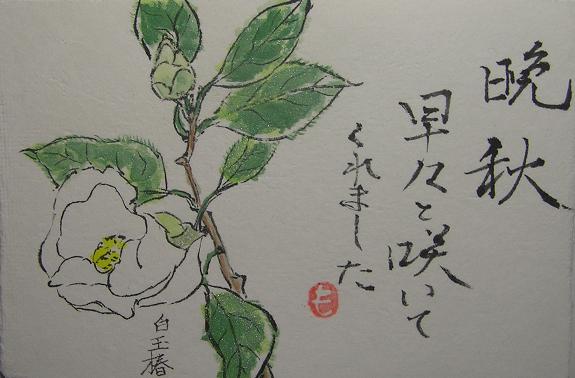 晩秋
早々と咲いて
くれました
白玉椿